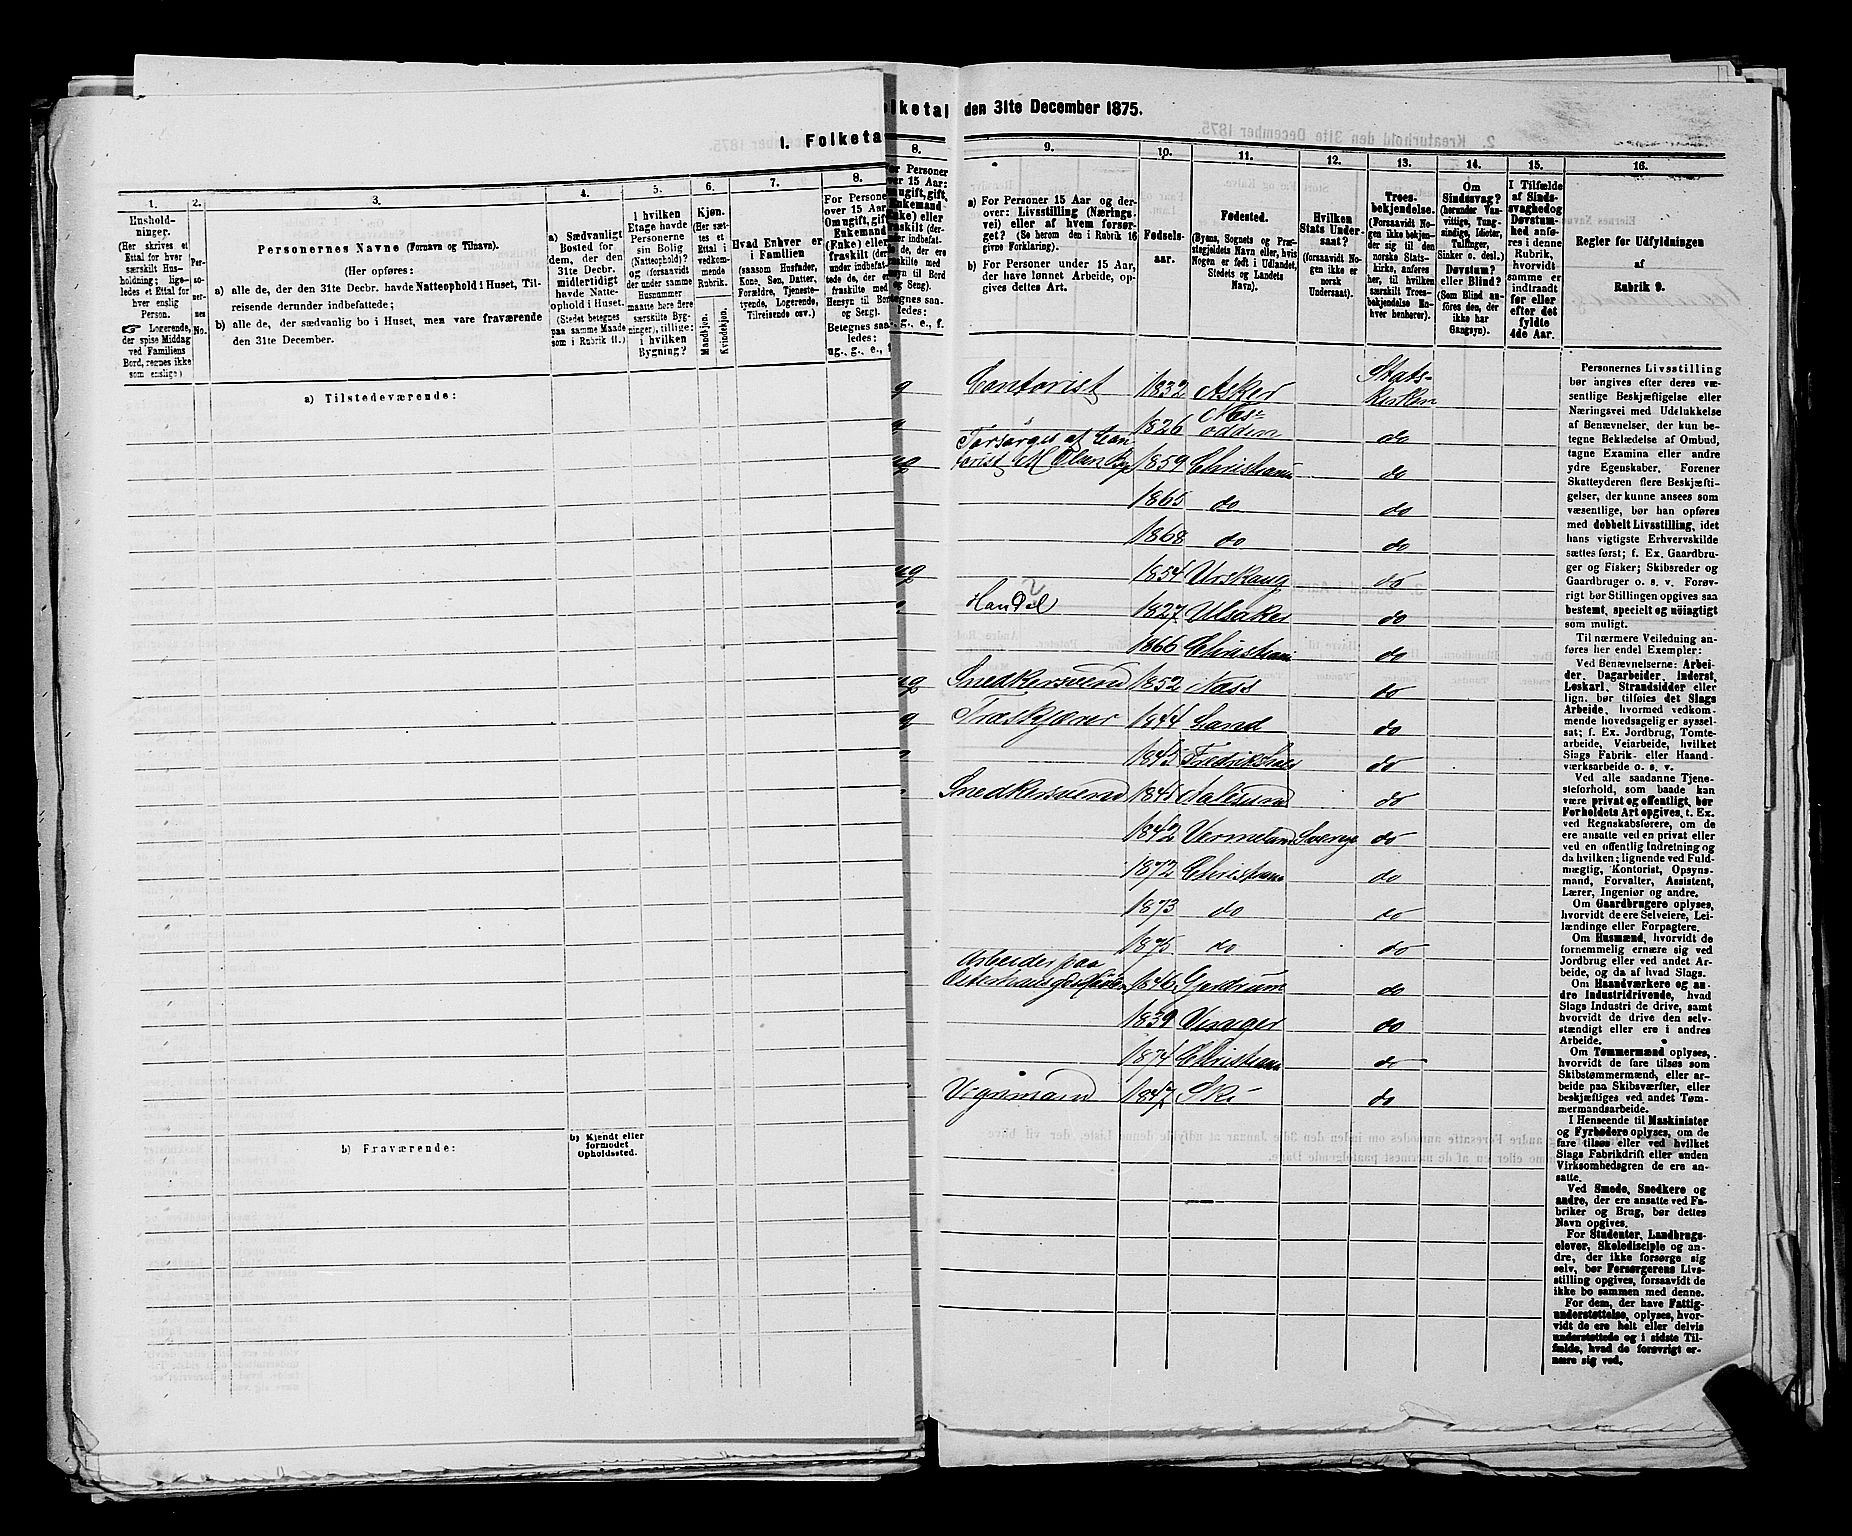 1. Folketa
1.
2.
3.
4.
5.
6.
7.
8.
Hushold-
ninger.
(Her skrives et
Ettal for hver
særskilt Hus-
holdning; lige-
ledes et Ettal for
hver enslig
Person.
☞ Logerende,
der spise Middag
ved Familiens
Bord, regnes ikke
som enslige)
Per-
so-
ner-
nes
No.
Personernes Navne (Fornavn og Tilnavn).
(Her opføres:
a) alle de, der den 31te Decbr. havde Natteophold i Huset, Til-
reisende derunder indbefattede;
b) alle de, der sædvanlig bo i Huset, men vare fraværende
den 31te December.
a) Sædvanligt
Bosted for
dem, der den
31te Decbr.
midlertidigt
havde Natte-
ophold i Huset.
(Stedet betegnes
paa samme Maade
som i Rubrik 11.)
I hvilken
Etage havde
Personerne
sin Bolig
(Natteophold)?
og (forsaavidt
der under samme
Husnummer
maatte høre flere
særskilte Byg-
ninger), tillige:
i hvilken
Bygning?
Kjøn.
(Her sæt-
tes et
Ettal i
vedkom-
mende
Rubrik.
Mandkjøn.
Kvindekjøn.
Hvad Enhver er
i Familien
(saasom Husfader,
Kone, Søn, Datter,
Forældre, Tjeneste-
tyende, Logerende,
Tilreisende osv.)
For Personer
over 15 Aar:
Om ugift, gift,
Enkemand
(Enke) eller
fraskilt (der-
under indbefat-
tede de, der ere
fraskilte med
Hensyn til Bord
og Seng).
Betegnes saa-
ledes:
ug., g., e., f.
a) Tilstedeværende:
b) Fraværende:
b) Kjendt eller
formodet
Opholdssted.
olketal den 31te December 1875.
8.
9.
10.
11.
12.
13.
14.
15.
16.
a) For Personer 15 Aar og der-
over: Livsstilling (Nærings-
vei) eller af hvem forsør-
get? (Se herom den i Rubrik 16
givne Forklaring).
b) For Personer under 15 Aar,
der have lønnet Arbeide, op-
gives dettes Art.
Fødsels-
aar.
Fødested.
(Byens, Sognets og Præ-
stegjeldets Navn eller, hvis
Nogen er født i Udlandet,
Stedets og Landets
Navn).
Hvilken
Stats Under-
saat?
(forsaavidt No-
gen ikke er
norsk
Undersaat).
Troes-
bekjendelse.
(Forsaavidt No-
gen ikke bekjen-
der sig til den
norske Stats-
kirke, anføres
her, til hvilken
særskilt Troes-
bekjendelse En-
hver henhører).
Om
Sindssvag?
(herunder Van-
vittige, Tung-
sindige, Idioter,
Tullinger,
Sinker o. desl.)
Døvstum?
eller Blind?
(Som Blind an-
føres den, der
ikke har
Gangsyn).
I Tilfælde
af Sinds-
svaghed og
Døvstum-
hed anfø-
res i denne
Rubrik,
hvorvidt
samme er
indtraadt
før eller
efter det
fyldte
4de Aar.
Regler for Udfyldningen
af
Rubrik 9.
g Contorist 1832 Asker Stats-
kirken
1826 Næs-
odden do
Forsørges af Con
ug torist M Olsen By 1859 Christiania do
1865 do do
1868 do do
ug 1854 Urskaug do
Handel 1827 Ulsaker do
1866 Christiani do
ug Snedkersvend 1852 Næss do
g Træskjærer 1844 Land do
1845 Fredrikshal do
Snedkersvend 1845 Aalesund do
1842 Vermeland Sverige do
1872 Christiana do
1873 do do
1875 do do
Arbeider paa
1846 Gjerdrum do
1839 Vinger do
1874 Christiana do
Vognmand 1847 Ski do
Personernes Livsstilling
bør angives efter deres væ-
sentlige Beskjæftigelse eller
Næringsvei med Udelukkelse
af Benævnelser, der kun be-
tegne Beklædelse af Ombud,
tagne Examina eller andre
ydre Egenskaber. Forener
Skatteyderen flere Beskjæfti-
gelser, der kunne ansees som
væsentlige, bør han opføres
med dobbelt Livsstilling, idet
hans vigtigste Erhvervskilde
sættes først; f. Ex. Gaardbru-
ger og Fisker; Skibsreder og
Gaardbruger o. s. v. Forøv-
rigt bør Stillingen opgives saa
bestemt, specielt og nöiagtigt
som muligt.
Til nærmere Veiledning an-
føres her endel Exempler:
Ved Benævnelserne: Arbei-
der, Dagarbeider, Inderst,
Løskarl, Strandsidder eller
lign. bør tilføies det Slags
Arbeide, hvormed vedkom-
mende hovedsagelig er syssel-
sat; f. Ex. Jordbrug, Tomte-
arbeide, Veiarbeide, hvilket
Slags Fabrik- eller Haand-
værksarbeide o. s. v.
Ved alle saadanne Tjene-
steforhold, som baade kan
være privat og offentligt, bør
Forholdets Art opgives, t. Ex.
ved Regnskabsførere, om de
ere ansatte ved en privat eller
ved en offentlig Indretning og
da hvilken; lignende ved Fuld-
mægtig, Kontorist, Opsyns-
mand, Forvalter, Assistent,
Lærer, Ingeniør og andre.
Om Gaardbrugere oplyses,
hvorvidt de ere Selveiere, Lei-
lændinge eller Forpagtere.
Om Husmænd, hvorvidt de
fornemmelig ernære sig ved
Jordbrug eller ved andet Ar-
beide, og da af hvad Slags.
Om Haandværkere og an-
dre Industridrivende, hvad
Slags Industri de drive, samt
hvorvidt de drive den selv-
stændigt eller ere i andres
Arbeide.
Om Tømmermænd oplyses,
hvorvidt de fare tilsøs som
Skibstømmermænd, eller ar-
beide paa Skibsværfter, eller
beskjæftiges ved andet Tøm-
mermandsarbeide.
I Henseende til Maskinister
og Fyrbødere oplyses, om de
fare tilsøs eller ved hvilket
Slags Fabrikdrift eller anden
Virksomhedsgren de ere an-
satte.
Ved Smede, Snedkere og
andre, der ere ansatte ved Fa-
briker og Brug, bør dettes
Navn opgives.
For Studenter, Landbrugs-
elever, Skoledisciple og an-
dre, der ikke forsørge sig
selv, bør Forsørgerens Livs-
stilling opgives, forsaavidt de
ikke bo sammen med denne.
For dem, der have Fattig-
understøttelse, oplyses, hvor-
vidt de ere helt eller delvis
understøttede og i sidste Til-
fælde, hvad de forøvrigt er-
nære sig ved.